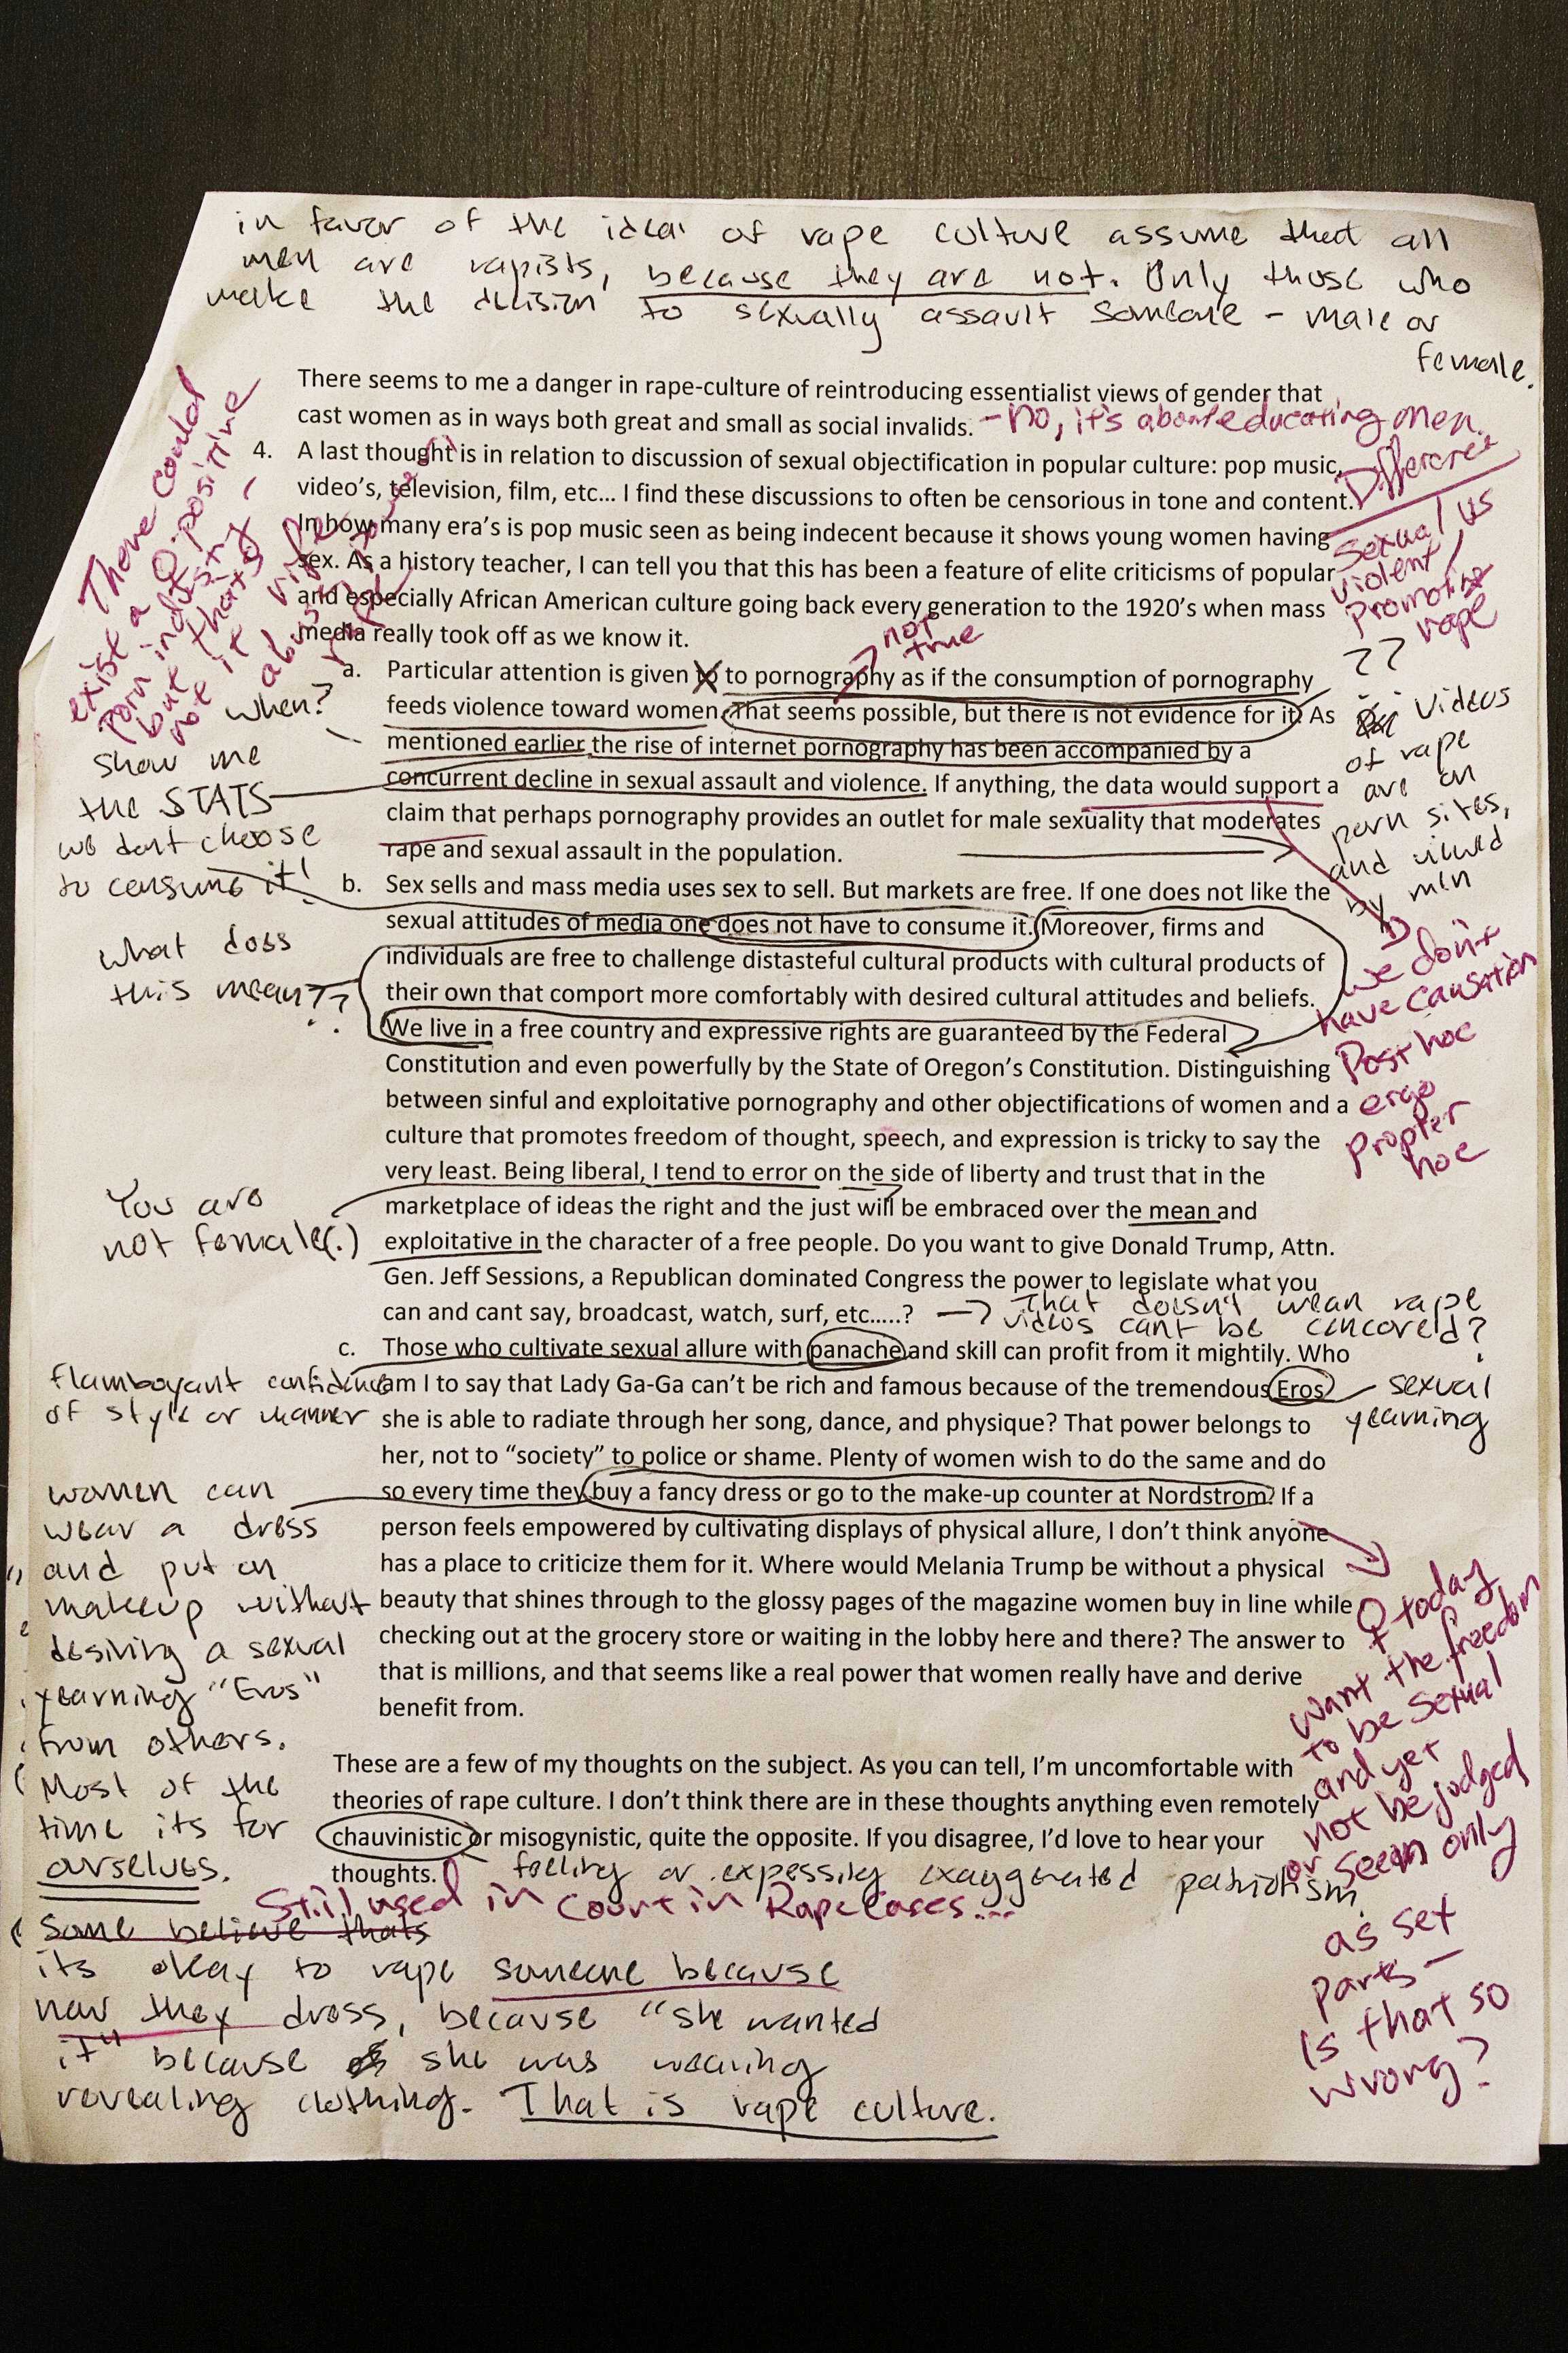 in favor of the ideal of rape culture assume that all
men are rapists, because they are not. Only those who
make the decision to sexually assault someone - male or
female.
There seems to me a danger in rape-culture of reintroducing essentialist views of gender that
cast women as in ways both great and small as social invalids.
- no, it's about educating men.
4. A last thought is in relation to discussion of sexual objectification in popular culture: pop music,
video's, television, film, etc... I find these discussions to often be censorious in tone and content.
In how many era's is pop music seen as being indecent because it shows young women having
sex. As a history teacher, I can tell you that this has been a feature of elite criticisms of popular
and especially African American culture going back every generation to the 1920's when mass
media really took off as we know it.
There could
exist a ♀ positive
porn industry -
but that's
not it
Difference
sexual vs
violent /
promotise
rape
??
not
true
a. Particular attention is given to to pornography as if the consumption of pornography
feeds violence toward women. That seems possible, but there is not evidence for it. As
mentioned earlier the rise of internet pornography has been accompanied by a
concurrent decline in sexual assault and violence. If anything, the data would support a
claim that perhaps pornography provides an outlet for male sexuality that moderates
rape and sexual assault in the population.
when?
show me
the STATS
videos
of rape
are on
porn sites,
and viewed
by men
we don't
have causation
Post hoc
ergo
propter
hoc
we dont choose
to consume it!
b. Sex sells and mass media uses sex to sell. But markets are free. If one does not like the
sexual attitudes of media one does not have to consume it. Moreover, firms and
individuals are free to challenge distasteful cultural products with cultural products of
their own that comport more comfortably with desired cultural attitudes and beliefs.
We live in a free country and expressive rights are guaranteed by the Federal
Constitution and even powerfully by the State of Oregon's Constitution. Distinguishing
between sinful and exploitative pornography and other objectifications of women and a
culture that promotes freedom of thought, speech, and expression is tricky to say the
very least. Being liberal, I tend to error on the side of liberty and trust that in the
marketplace of ideas the right and the just will be embraced over the mean and
exploitative in the character of a free people. Do you want to give Donald Trump, Attn.
Gen. Jeff Sessions, a Republican dominated Congress the power to legislate what you
can and cant say, broadcast, watch, surf, etc.....?
what does
this mean??
You are
not female(.)
That doesn't mean rape
videos cant be cencored?
c. Those who cultivate sexual allure with panache and skill can profit from it mightily. Who
am I to say that Lady Ga-Ga can't be rich and famous because of the tremendous Eros
she is able to radiate through her song, dance, and physique? That power belongs to
her, not to "society" to police or shame. Plenty of women wish to do the same and do
so every time they buy a fancy dress or go to the make-up counter at Nordstrom. If a
person feels empowered by cultivating displays of physical allure, I don't think anyone
has a place to criticize them for it. Where would Melania Trump be without a physical
beauty that shines through to the glossy pages of the magazine women buy in line while
checking out at the grocery store or waiting in the lobby here and there? The answer to
that is millions, and that seems like a real power that women really have and derive
benefit from.
flamboyant confidence
of style or manner
sexual
yearning
women can
wear a dress
and put on
makeup without
desiring a sexual
yearning "Eros"
from others.
Most of the
time its for
ourselves.
♀ today
want the freedom
to be sexual
and yet
not be judged
or seen only
as set
parts -
is that so
wrong?
These are a few of my thoughts on the subject. As you can tell, I'm uncomfortable with
theories of rape culture. I don't think there are in these thoughts anything even remotely
chauvinistic or misogynistic, quite the opposite. If you disagree, I'd love to hear your
thoughts.
feeling or expessing exaggerated patriotism
Still used in court in Rape cases...
Some believe thats
its okay to rape someone because
how they dress, because "she wanted
it" because she was wearing
revealing clothing. That is rape culture.